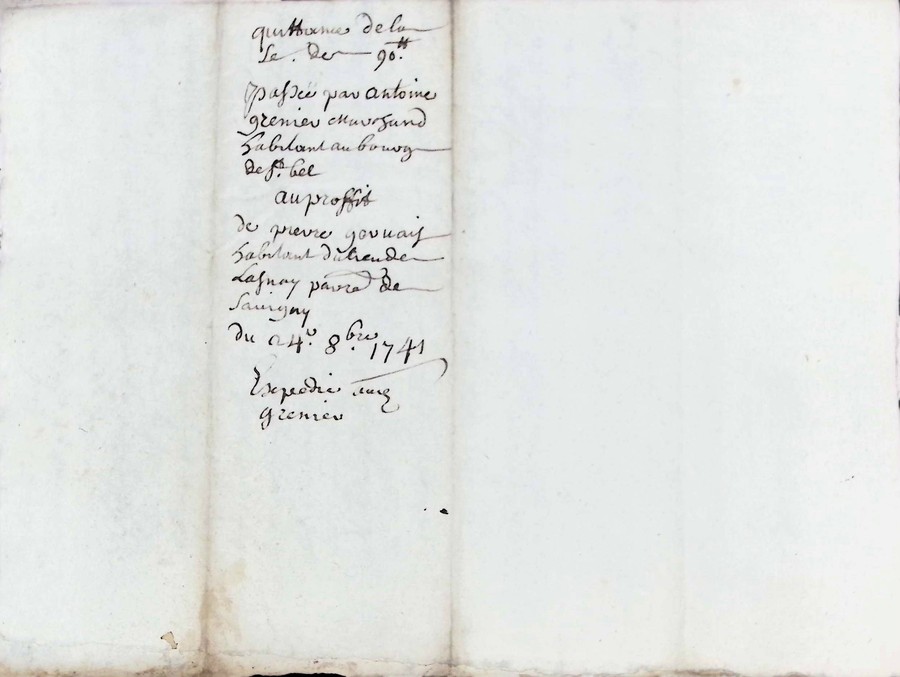 quittance de la
Se. de 90.tt
passée par antoine
grenier Marchand
habitant au bourg
de St. bel
au proffit
de pierre gervais
habitant du lieu de
Lasnay parr. de
Savigny
du 24e. 8.bre 1741
Expedié
grenier